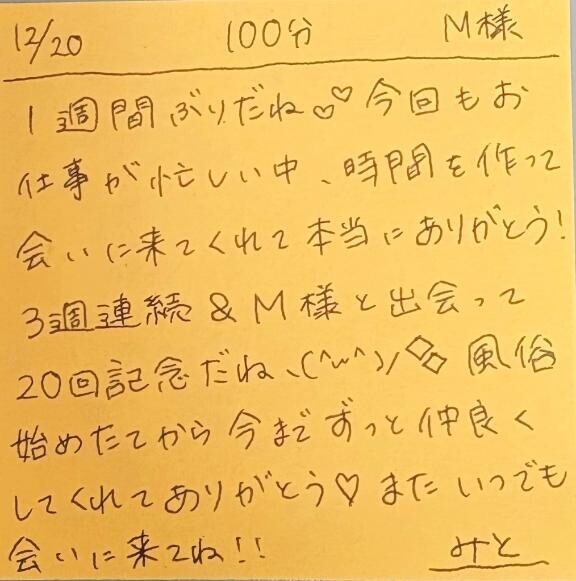 12/20 100分 M様
1週間ぶりだね♡♡今回もお
仕事が忙しい中、時間を作って
会いに来てくれて本当にありがとう!
3週連続&M様と出会って
20回記念だね、(^w^)ノ◇◇風俗
始めたてから今までずっと仲良く
してくれてありがとう♡またいつでも
会いに来てね!! みと